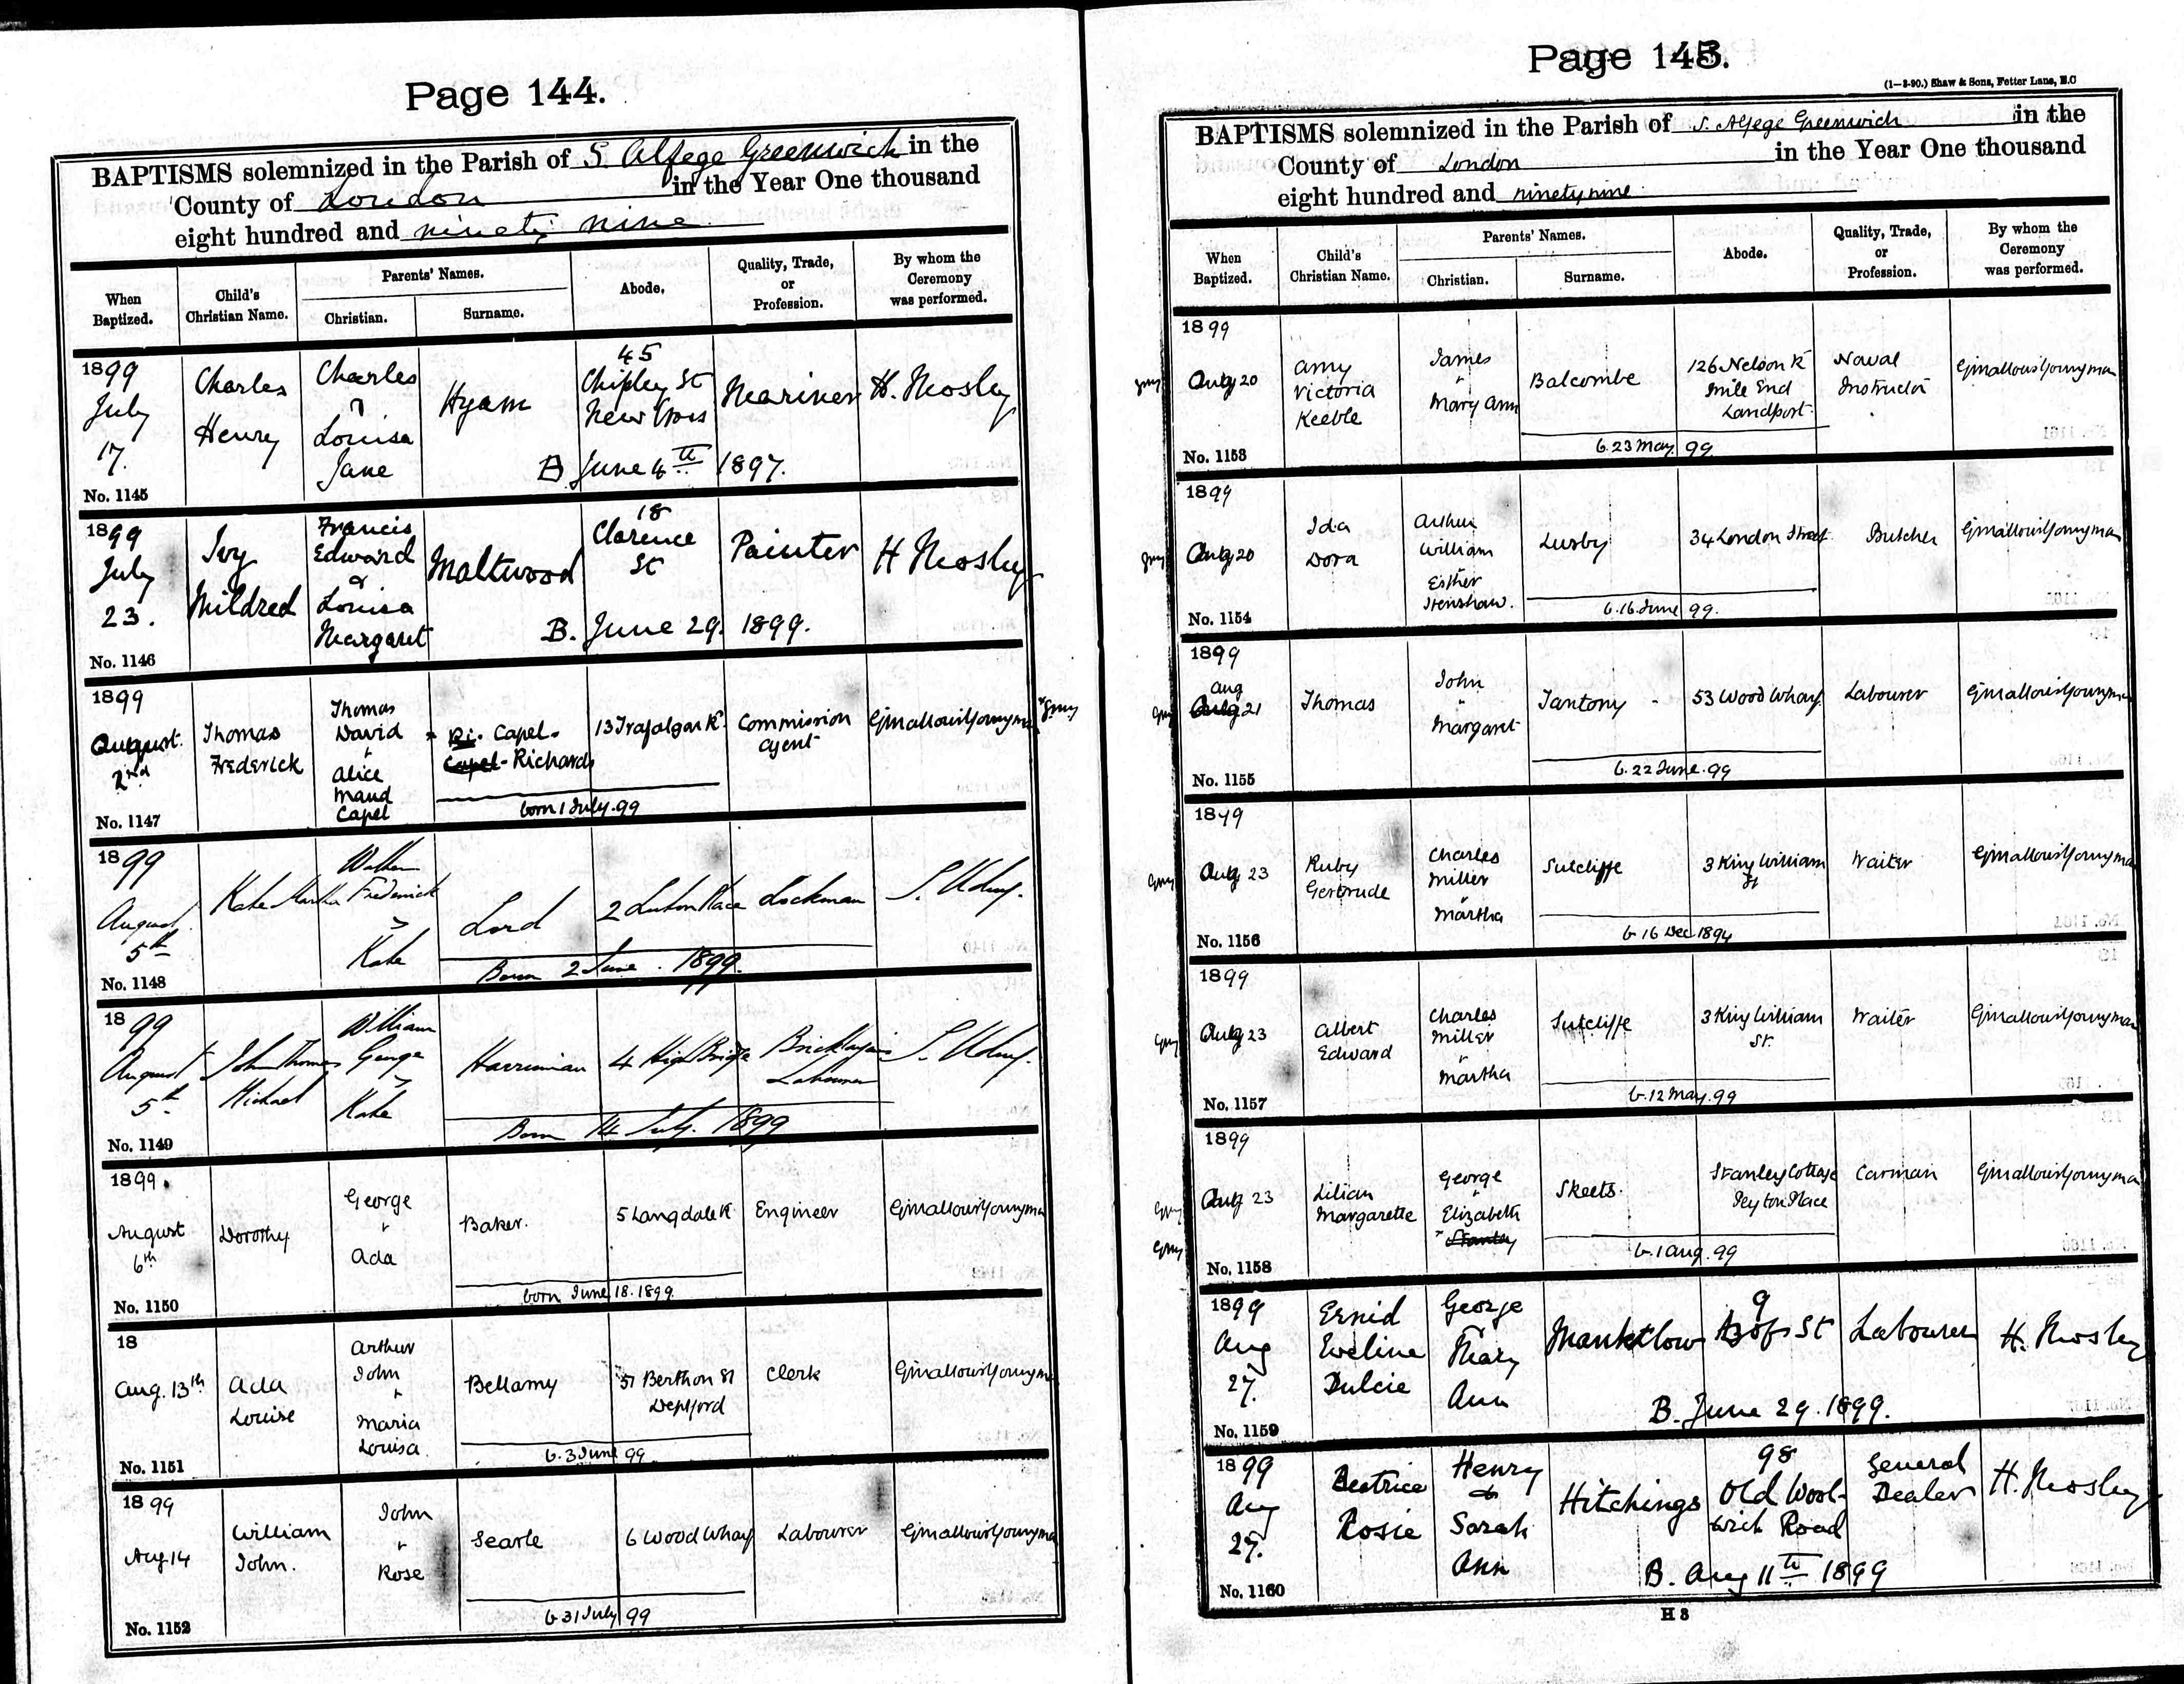 Page 144.
BAPTISMS solemnized in the Parish of S. Alfege Greenwich in the
County of London in the Year One thousand
eight hundred and ninety nine
When Baptized. Child's Christian Name. Parents' Names. Christian. Surname. Abode. Quality, Trade, or Profession. By whom the Ceremony was performed.
1899 July 17. Charles Henry Charles & Louisa Jane Hyam 45 Chipley St New Cross Mariner H. Mosley
B June 4th 1897.
No. 1145
1899 July 23. Ivy Mildred Francis Edward & Louisa Margaret Maltwood 18 Clarence St Painter H Mosley
B. June 29. 1899.
No. 1146
1899 August 2nd Thomas Frederick Thomas David & Alice Maud Capel Ri. Capel- Capel-Richards 13 Trafalgar Rd Commission Agent
born 1 July. 99
No. 1147
1899 August 5th Kate Martha Frederick & Kate Lord 2 Luton Place Lockman
Born 2 June. 1899.
No. 1148
1899 August 5th John Thomas Michael William George & Kate Harriman 4 High Bridge Bricklayers Labourer
Born 14 July. 1899
No. 1149
1899. August 6th Dorothy George & Ada Baker. 5 Langdale Rd Engineer
born June 18. 1899.
No. 1150
18 Aug. 13th Ada Louise Arthur John & Maria Louisa. Bellamy 51 Berthon St Deptford Clerk
b. 3 June 99
No. 1151
1899 Aug 14 William John. John & Rose Searle 6 Wood Wharf Labourer
b 31 July 99
No. 1152
Page 145.
(1—3-90.) Shaw & Sons, Fetter Lane, E.C
BAPTISMS solemnized in the Parish of S. Alfege Greenwich in the
County of London in the Year One thousand
eight hundred and ninety nine
When Baptized. Child's Christian Name. Parents' Names. Christian. Surname. Abode. Quality, Trade, or Profession. By whom the Ceremony was performed.
1899 Aug 20 Amy Victoria Keeble James & Mary Ann Balcombe 126 Nelson Rd Mile End Landport. Naval Instructor
b. 23 May. 99
No. 1153
1899 Aug 20 Ida Dora Arthur William Esther Henshaw. Lusby 34 London Street Butcher
b. 16 June 99.
No. 1154
1899 Aug 21 Thomas John & Margaret Tantony 53 Wood Wharf Labourer
b. 22 June. 99
No. 1155
1899 Aug 23 Ruby Gertrude Charles Miller & Martha Sutcliffe 3 King William St Waiter
b 16 Dec 1894
No. 1156
1899 Aug 23 Albert Edward Charles Miller & Martha Sutcliffe 3 King William St. Waiter
b. 12 May. 99
No. 1157
1899 Aug 23 Lilian Margarette George & Elizabeth Stanley Skeets. Stanley Cottage Peyton Place Carman
b. 1 Aug. 99
No. 1158
1899 Aug 27. Ernid Eveline Dulcie George & Mary Ann Manktlow 9 St Labourer H. Mosley
B. June 29. 1899.
No. 1159
1899 Aug 27. Beatrice Rosie Henry & Sarah Ann Hitchings 98 Old Wool-wich Road General Dealer H. Mosley
B. Aug 11th 1899
No. 1160
H 3